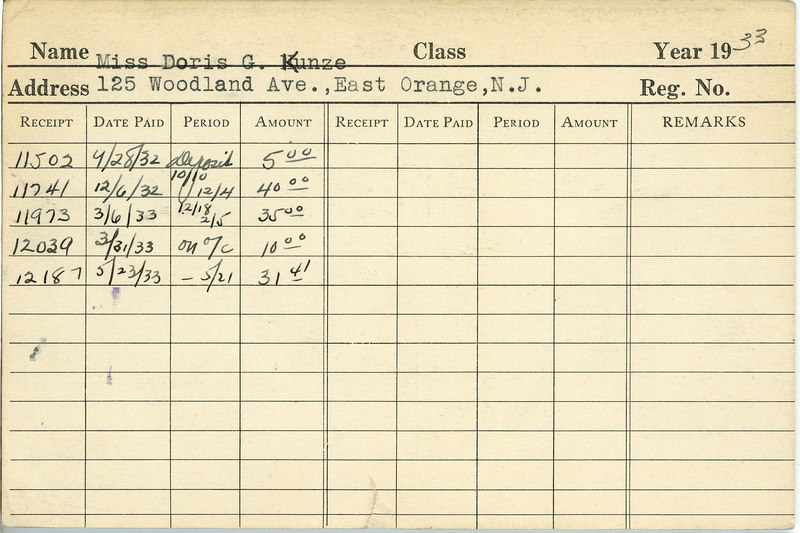 Name Miss Doris G. Kunze Class Year 1933
Address 125 Woodland Ave.,East Orange,N.J. Reg. No.
RECEIPT DATE PAID PERIOD AMOUNT RECEIPT DATE PAID PERIOD AMOUNT REMARKS
11502 9/28/32 Deposit 5 00
11741 12/6/32 10/10 12/4 40 00
11973 3/6/33 12/18 2/5 35 00
12039 3/31/33 on a/c 10 00
12187 5/23/33 – 5/21 31 41